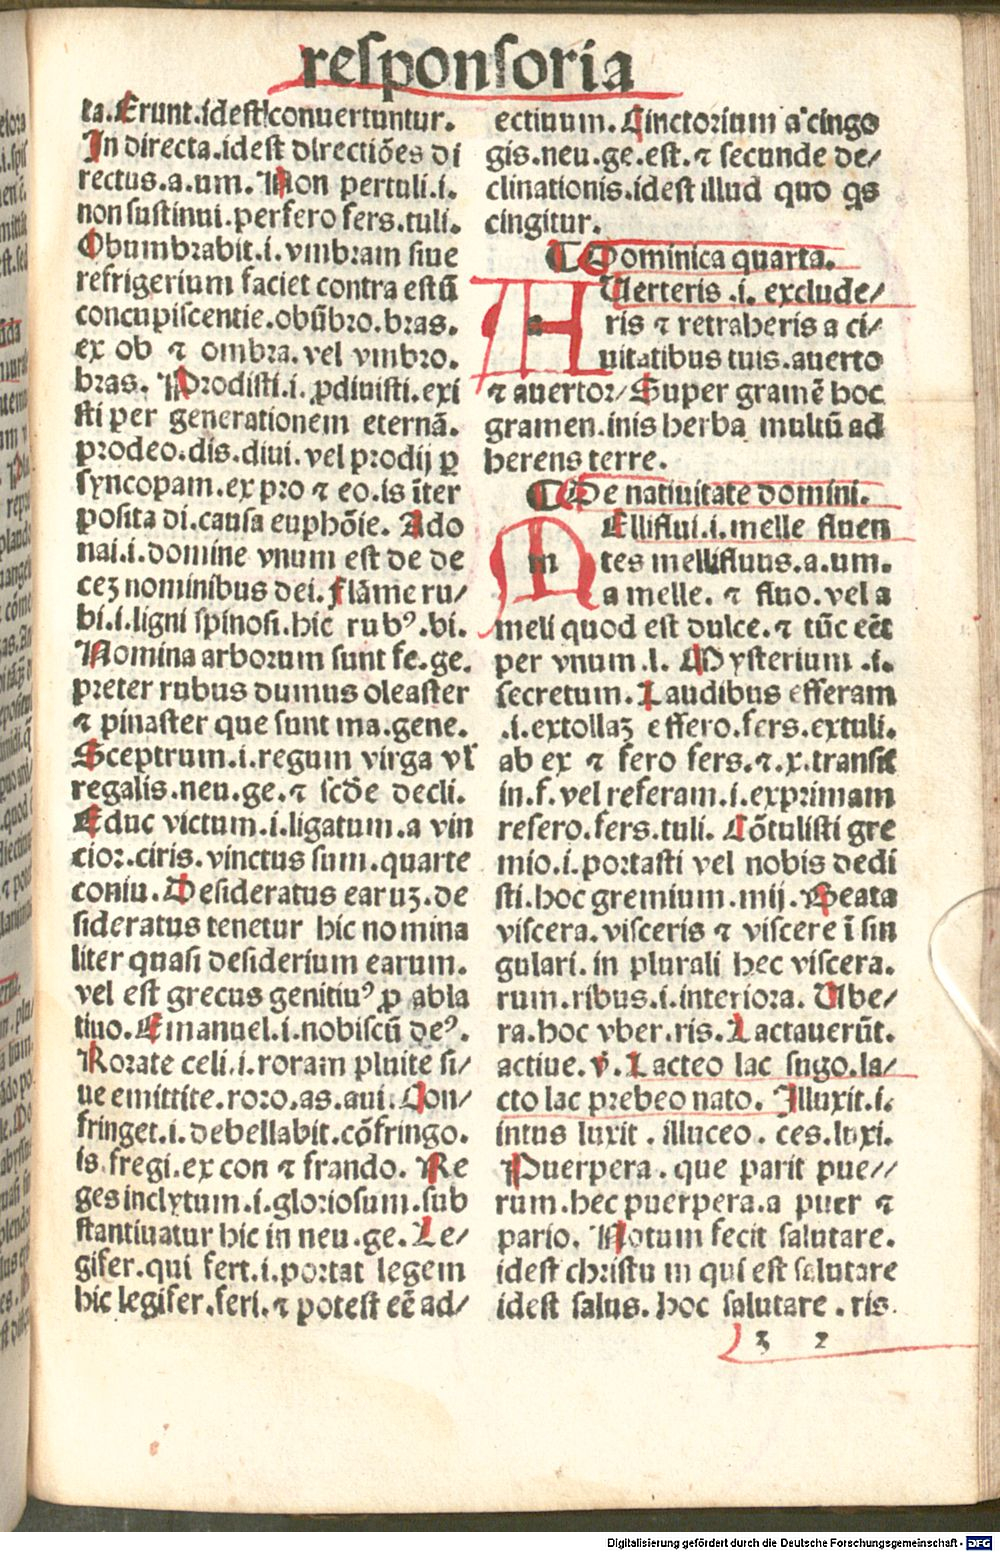 responsoria
ta. Erunt.idest conuertuntur.
In directa.idest directiões di
rectus.a.um. Non pertuli.i.
non sustinui.perfero fers.tuli.
Obumbrabit.i.vmbram siue
refrigerium faciet contra estũ
concupiscentie.obũbro.bras.
ex ob ⁊ ombra.vel vmbro.
bras. Prodisti.i.ꝓdiuisti.exi
sti per generationem eternã.
prodeo.dis.diui.vel prodij ꝑ
syncopam.ex pro ⁊ eo.is ĩter
posita di.causa euphõie. Ado
nai.i.domine vnum est de de
ceꝫ nominibus dei. flãme ru/
bi.i.ligni spinosi.hic rubꝰ.bi.
Nomina arborum sunt fe.ge.
preter rubus dumus oleaster
⁊ pinaster que sunt ma.gene.
Sceptrum.i.regum virga vľ
regalis.neu.ge.⁊ scðe decli.
Educ victum.i.ligatum.a vin
cior.ciris.vinctus sum.quarte
coniu. Desideratus earuꝫ.de
sideratus tenetur hic nomina
liter quasi desiderium earum.
vel est grecus genitiuꝰ ꝓ abla
tiuo. Emanuel.i.nobiscũ deꝰ.
Rorate celi.i.roram pluite si/
ue emittite.roro.as.aui. Con/
fringet.i.debellabit.cõfringo.
is.fregi.ex con ⁊ frando. Re
ges inclytum.i.gloriosum.sub
stantiuatur hic in neu.ge. Le/
gifer.qui fert.i.portat legem
hic legifer.feri.⁊ potest eẽ ad/
ectiuum. Cinctorium a cingo
gis.neu.ge.est.⁊ secunde de/
clinationis.idest illud quo qs
cingitur.
¶ Dominica quarta.
AUerteris .i. exclude/
ris ⁊ retraheris a ci/
uitatibus tuis.auerto
⁊ auertor/ Super gramẽ hoc
gramen.inis herba multũ ad
herens terre.
¶ De natiuitate domini.
MElliflui.i.melle fluen
tes mellifluus.a.um.
a melle. ⁊ fluo.vel a
meli quod est dulce.⁊ tũc eẽt
per vnum .l. Mysterium .i.
secretum. Laudibus efferam
.i.extollaꝫ effero.fers.extuli.
ab ex ⁊ fero fers.⁊.x.transit
in.f.vel referam.i.exprimam
refero.fers.tuli. Cõtulisti gre
mio.i.portasti vel nobis dedi
sti.hoc gremium.mij. Beata
viscera.visceris ⁊ viscere ĩ sin
gulari.in plurali hec viscera.
rum.ribus.i.interiora. Vbe/
ra.hoc vber.ris. Lactauerũt.
actiue. v̄. Lacteo lac sugo.la/
cto lac prebeo nato. Illuxit.i.
intus luxit . illuceo . ces.luxi.
Puerpera . que parit pue//
rum.hec puerpera.a puer ⁊
pario. Notum fecit salutare.
idest christū in qui est salutare
idest salus. hoc salutare . ris.
ꝫ 2
Digitalisierung gefördert durch die Deutsche Forschungsgemeinschaft - DFG